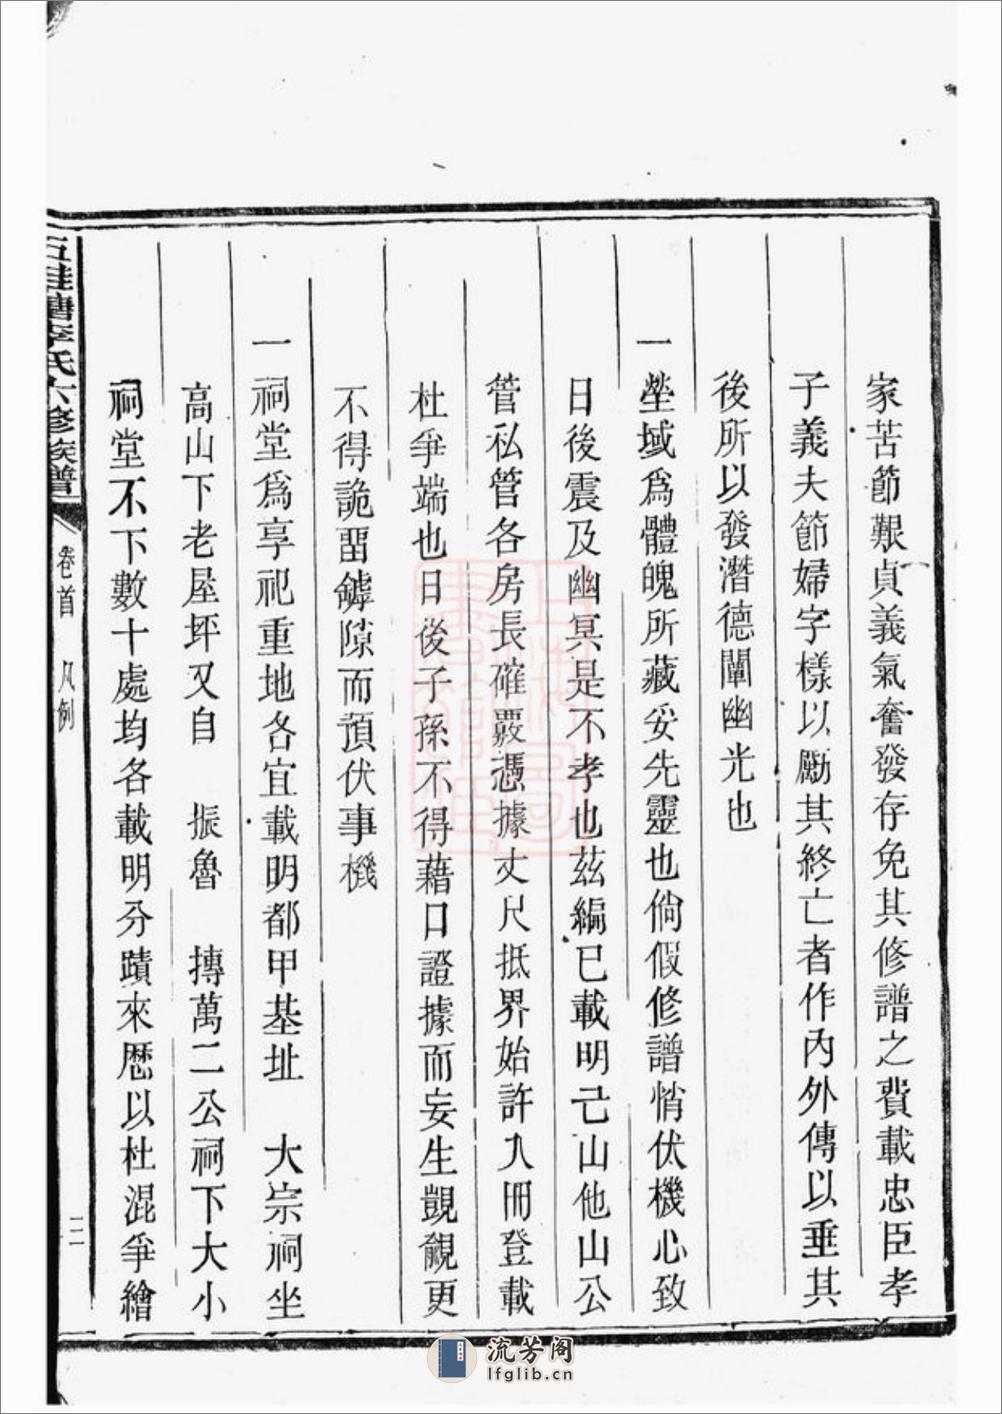 家苦節艱貞義氣奮發存免其修譜之費載忠臣孝
子義夫節婦字樣以勵其終亡者作內外傳以垂其
後所以發潛德闡幽光也
一塋域爲體魄所藏妥先靈也倘假修譜悄伏機心致
日後震及幽冥是不孝也茲編已載明己山他山公
管私管各房長確覈憑據丈尺抵界始許入冊登載
杜爭端也日後子孫不得藉口證據而妄生覬覦更
不得詭留罅隙而預伏事機
一祠堂爲享祀重地各宜載明都甲基址 大宗祠坐
高山下老屋坪又自 振魯 摶萬二公祠下大小
祠堂不下數十處均各載明分蹟來歷以杜混爭繪
五桂塘李氏六修族譜
卷首 凡例
三
流芳阁
lfglib.cn